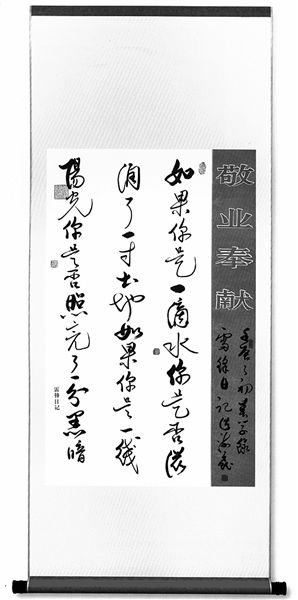 敬业奉献
雷锋日记
如果你是一滴水你是否滋
润了一寸土地如果你是一线
陽光你是否照亮了一分黑暗
雷锋日记